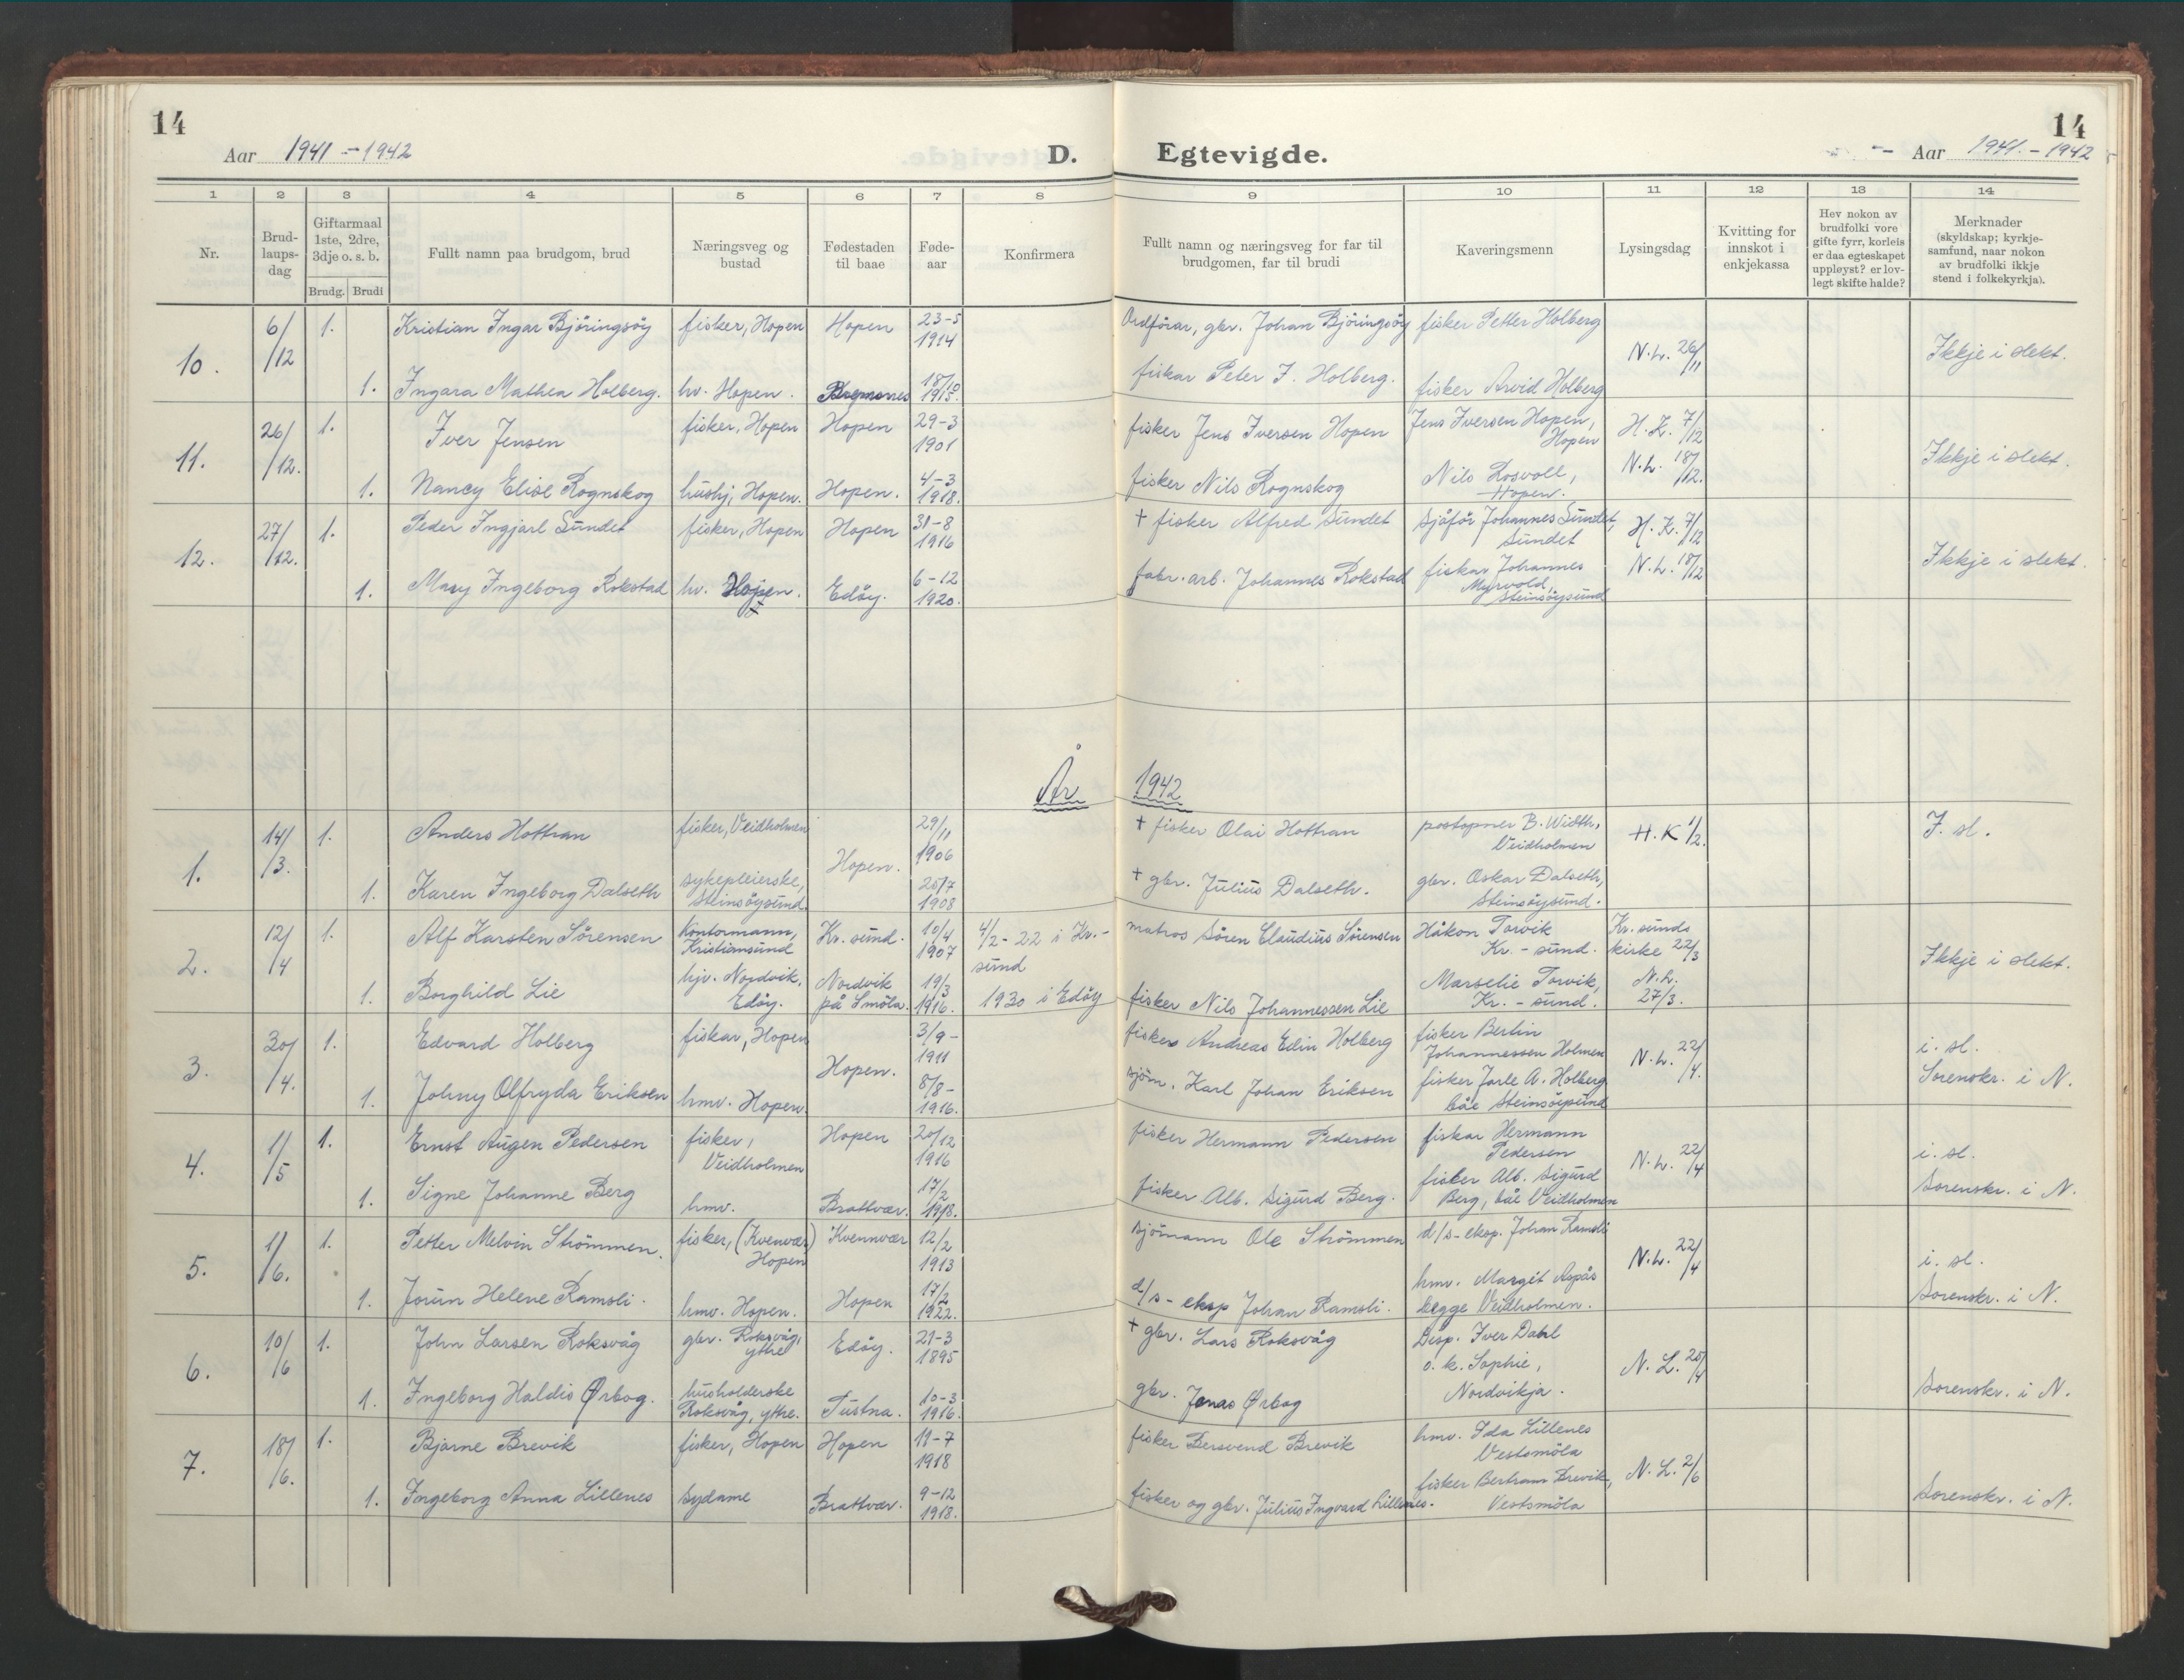 14
Aar 1941 - 1942
D.
Egtevigde.
Aar 1941. - 1942
14
1 2 3 4 5 6 7 8 9 10 11 12 13 14
Nr.
Brud-
laups-
dag
Giftarmaal
1ste, 2dre,
3dje o. s. b.
Brudg. Brudi
Fullt namn paa brudgom, brud
Næringsveg og
bustad
Fødestaden
til baae
Føde-
aar
Konfirmera
Fullt namn og næringsveg for far til
brudgomen, far til brudi
Kaveringsmenn
Lysingsdag
Kvitting for
innskot i
enkjekassa
Hev nokon av
brudfolki vore
gifte fyrr, korleis
er daa egteskapet
uppløyst? er lov-
legt skifte halde?
Merknader
(skyldskap; kyrkje-
samfund, naar nokon
av brudfolki ikkje
stend i folkekyrkja).
10.
6/12
1. Kristian Ingar Björingsöy
fisker, Hopen
Hopen
23-5
1914
Ordförar, gbr. Johan Björingsöy
fisker Petter Holberg
N.L. 26/11
Ikkje i slekt.
1. Ingara Mathea Holberg.
hv. Hopen.
18/10
1915.
fiskar Peter J. Holberg.
fisker Arvid Holberg
11.
26/12.
1. Iver Jensen
fisker, Hopen
Hopen
29-3
1901
fisker Jens Iversen Hopen
Jens Iversen Hopen,
Hopen
H.K. 7/12
N.L. 18/12.
Ikkje i slekt.
1. Nancy Elise Rognskog
hushj, Hopen.
Hopen.
4-3
1918.
fisker Nils Rognskog
Nils Rosvoll,
Hopen.
12.
27/12.
1. Peder Ingjarl Sundet
fisker, Hopen
Hopen
31-8
1916
+ fisker Alfred Sundet
sjåför Johannes Sundet,
Sundet
H.K. 7/12
N.L. 18/12
Ikkje i slekt.
1. Mary Ingeborg Rokstad
hv. Hopen.
Edöy.
6-12
1920.
fabr. arb. Johannes Rokstad
fiskar Johannes
Myrvold,
Steinsöysund
År 1942
1.
14/3.
1. Anders Hottran
fisker, Veidholmen
Hopen.
29/11
1906
+ fisker Olai Hottran
postopner B. Width,
Veidholmen
H.K 1/2.
I. sl.
1. Karen Ingeborg Dalseth
sykepleierske,
Steinsöysund.
25/7
1908
+ gbr. Julius Dalseth.
gbr. Oskar Dalseth,
Steinsöysund.
2.
12/4
1. Alf Karsten Sörensen
Kontormann,
Kristiansund
Kr. sund.
10/4
1907
4/2-22 i Kr.-
sund
matros Sören Claudius Sörensen
Håkon Torvik
Kr. - sund.
Kr. sunds
kirke 22/3
N.L.
27/3.
Ikkje i slekt.
1. Borghild Lie
hjv. Nordvik,
Edöy.
Nordvik
på Smöla.
19/3
1916.
1930 i Edöy
fisker Nils Johannessen Lie
Marselie Torvik,
Kr. - sund.
3.
30/4.
1. Edvard Holberg
fiskar, Hopen
Hopen.
3/9-
1911
fisker Andreas Edin Holberg
fisker Berlin
Johannessen Holmen
N.L. 22/4.
i. sl.
Sorenskr. i N.
1. Johny Olfryda Eriksen
hmv. Hopen.
8/8-
1916.
sjöm. Karl Johan Eriksen
fisker Jarle A. Holberg
båe Steinsöysund
4.
1/5
1. Ernst Augen Pedersen
fisker,
Veidholmen
Hopen
20/12
1916
fisker Hermann Pedersen
fiskar Hermann
Pedersen
N.L. 22/4
i. sl.
Sorenskr. i N.
1. Signe Johanne Berg
hmv.
Brattvær.
17/2
1918.
fisker Alb. Sigurd Berg.
fisker Alb. Sigurd
Berg, båe Veidholmen
5.
1/6.
1. Petter Melvin Strömmen.
fisker, (Kvenvær)
Hopen
Kvennvær
12/2
1913
sjömann Ole Strömmen
d/s- eksp. Johan Ramsli
N.L. 22/4
i. sl.
Sorenskr. i N.
1. Jorun Helene Ramsli.
hmv. Hopen.
Hopen
17/2
1922.
d/s- eksp Johan Ramsli.
hmv. Margit Aspås
begge Veidholmen.
6.
10/6
1. John Larsen Roksvåg
gbr. Roksvåg,
ytre
Edöy.
21-3
1895
+ gbr. Lars Roksvåg
Disp. Iver Dahl
o. k. Sophie,
Nordvikja.
N.L. 25/4
Sorenskr. i N.
1. Ingeborg Haldis Ørbog.
husholderske
Roksvåg, ytre.
Tustna.
10-3
1916.
gbr. Jonas Ørbog
7.
18/6.
1. Bjarne Brevik
fisker, Hopen
Hopen
11-7
1918
fisker Bersvend Brevik
hmv. Ida Lillenes
Vestsmöla
N.L. 2/6
Sorenskr. i N.
1. Ingeborg Anna Lillenes
sydame
Brattvær.
9-12
1918.
fisker og gbr. Julius Ingvard Lillenes.
fisker Bertram Brevik,
Vestsmöla